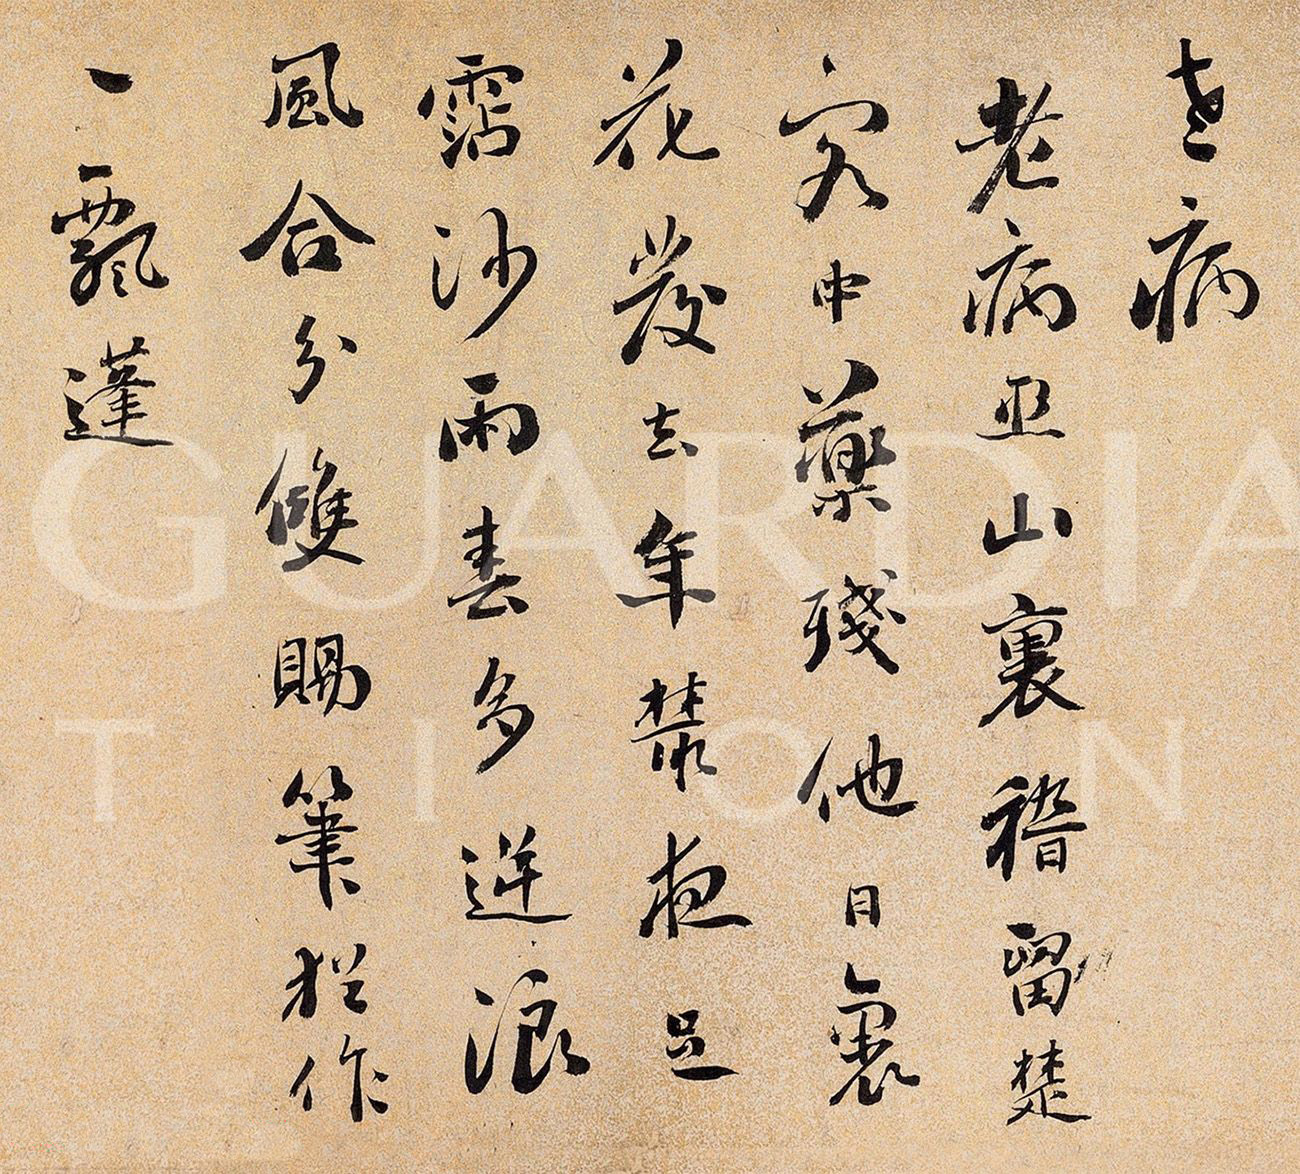 老病
老病巫山裏稽留楚
客中藥殘他日裹
花發去年叢夜足
霑沙雨春多逆浪
風合分雙賜筆猶作
一飄蓬
GUARDIA
TION